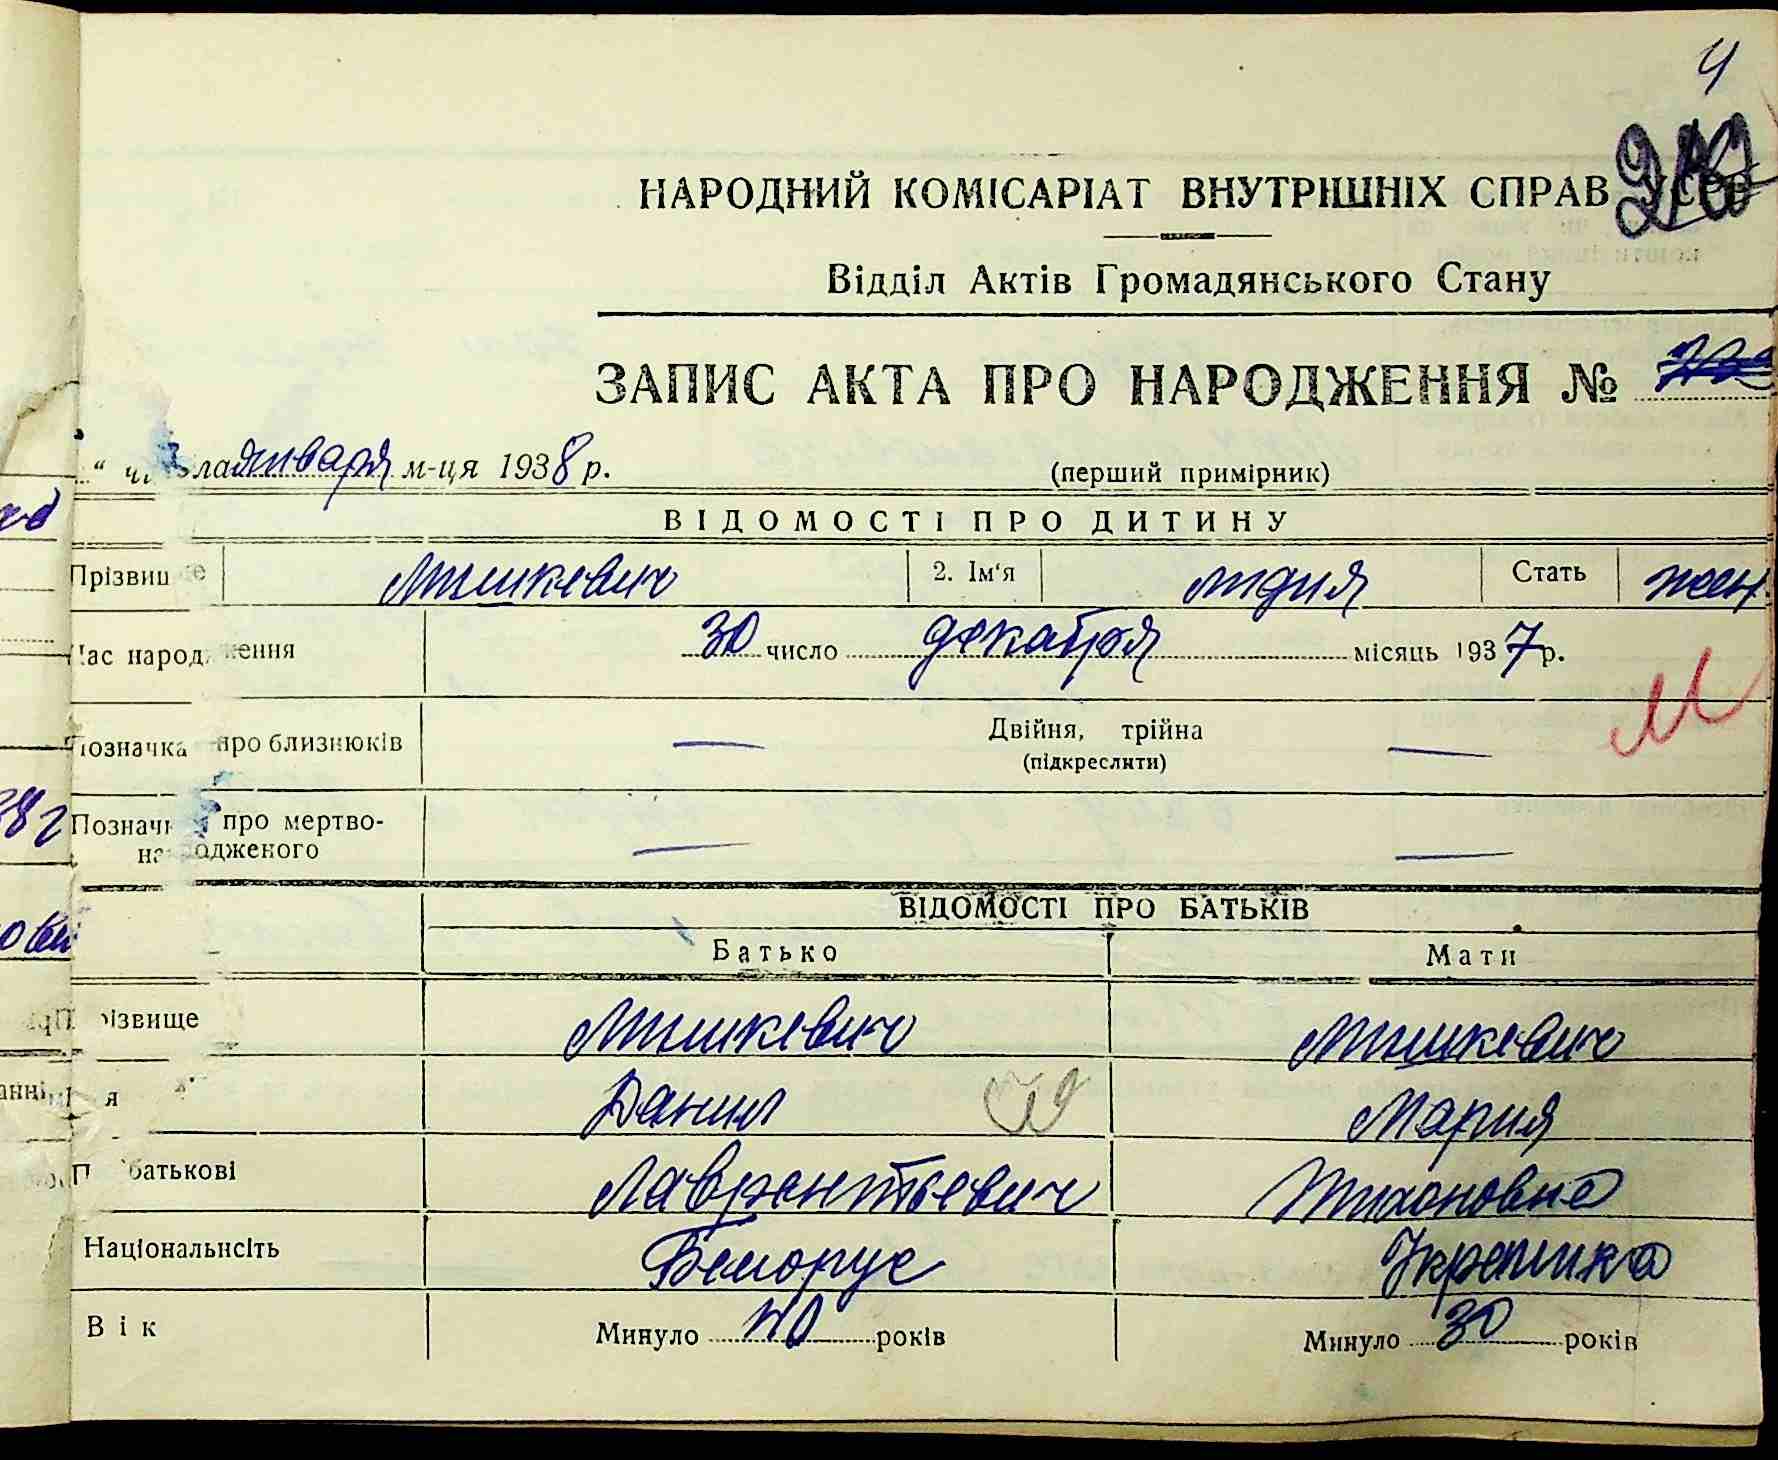 4
НАРОДНИЙ КОМІСАРІАТ ВНУТРІШНІХ СПРАВ УСРР
Відділ Актів Громадянського Стану
ЗАПИС АКТА ПРО НАРОДЖЕННЯ №
" числа января м-ця 1938 р.
(перший примірник)
ВІДОМОСТІ ПРО ДИТИНУ
Прізвище Мышкевич 2. Ім'я Лидия Стать жен
Час народження 30 число декабря місяць 1937 р.
М
Позначка про близнюків — Двійня, трійна —
(підкреслити)
Позначка про мертво-
народженого — —
ВІДОМОСТІ ПРО БАТЬКІВ
Батько Мати
Прізвище Мышкевич Мышкевич
Данил Мария
По батькові Лаврентьевич Тихоновна
Національнсіть Белорус Украинка
Вік Минуло 40 років Минуло 30 років